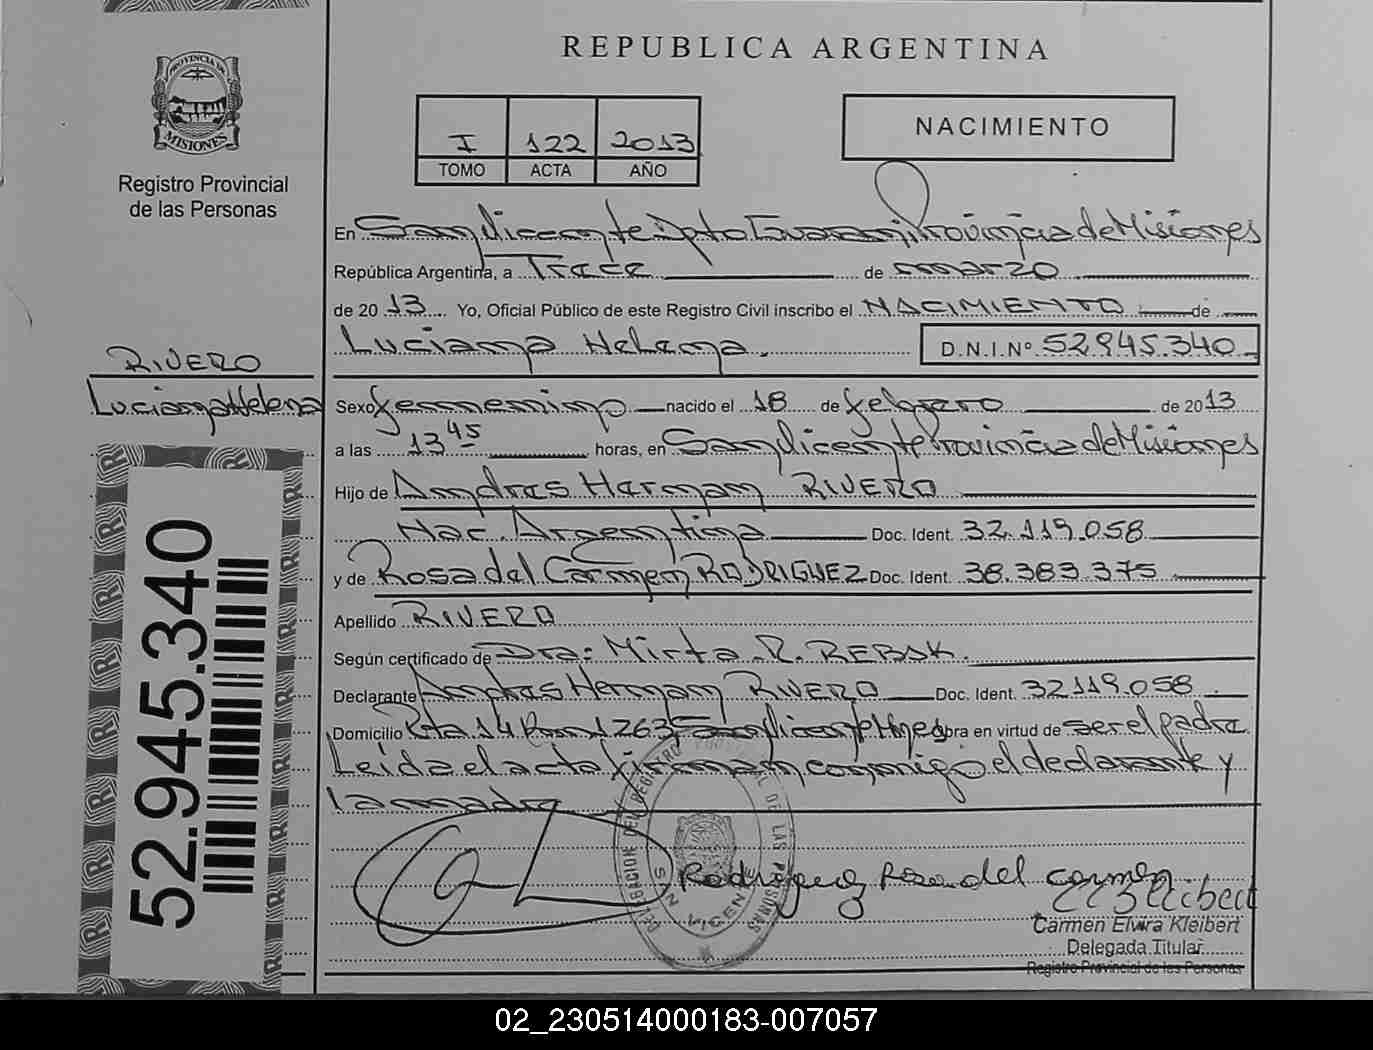 REPUBLICA ARGENTINA
PROVINCIA DE
MISIONES
Registro Provincial
de las Personas
I 122 2013
TOMO ACTA AÑO
NACIMIENTO
En San Vicente Dpto Guarani Provincia de Misiones
República Argentina, a Trece de marzo
de 2013 Yo, Oficial Público de este Registro Civil inscribo el NACIMIENTO de
Luciana Helena. D.N.I.Nº 52.945.340
RIVERO
Luciana Helena
Sexo femenino nacido el 18 de febrero de 2013
a las 13 45 horas, en San Vicente Provincia de Misiones
Hijo de Andres Hernan RIVERO
Nac. Argentina Doc. Ident. 32.119.058
y de Rosa del Carmen RODRIGUEZ Doc. Ident. 38.383.375
Apellido RIVERO
Según certificado de Dra: Mirta R. REBAK.
Declarante Andres Hernan RIVERO Doc. Ident. 32119.058
Domicilio Ruta 14 Km 1263 San Vicente Mnes obra en virtud de ser el padre.
Leida el acta firman conmigo el declarante y
la madre
52.945.340
DELEGACION DEL REGISTRO PROVINCIAL DE LAS PERSONAS
SAN VICENTE
Rodriguez Rosa del carmen
Carmen Elvira Kleibert
Delegada Titular
Registro Provincial de las Personas
02_230514000183-007057